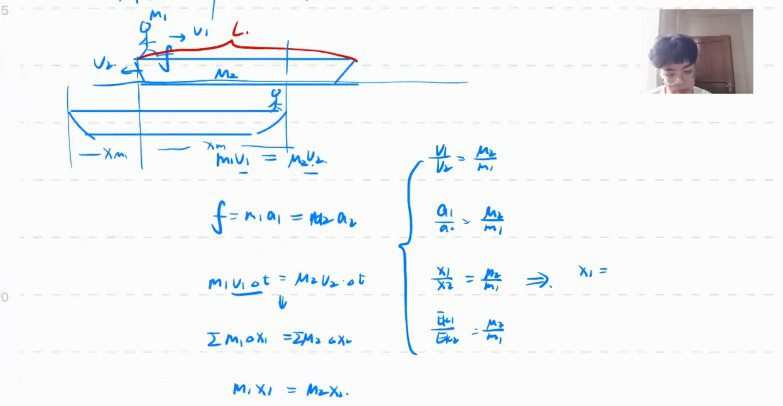 5
M₁
→ V₁
L.
V₂ ←
f
M₂
— Xm — Xm
m₁V₁ = M₂V₂
f = m₁a₁ = M₂a₂
m₁V₁Δt = M₂V₂·Δt
↓
Σm₁ΔX₁ = ΣM₂ΔX₂
M₁X₁ = M₂X₂.
V₁/V₂ = M₂/m₁
a₁/a₂ = M₂/m₁
X₁/X₂ = M₂/m₁ ⇒ X₁ =
Ek₁/Ek₂ = M₂/m₁
0